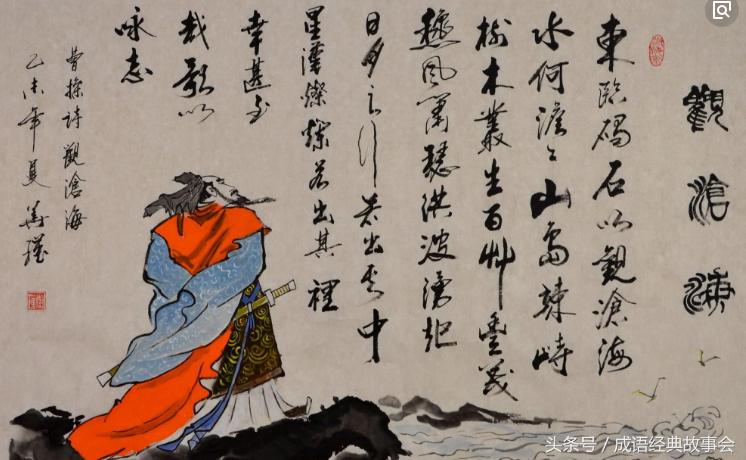 觀滄海
東臨碣石以觀滄海
水何澹々山島竦峙
樹木叢生百艸豐茂
穐風蕭瑟洪波湧起
日月之行若出其中
星漢燦爛若出其裡
幸甚至
哉歌以
咏志
曹操詩觀滄海
乙未年夏
头条号／成语经典故事会